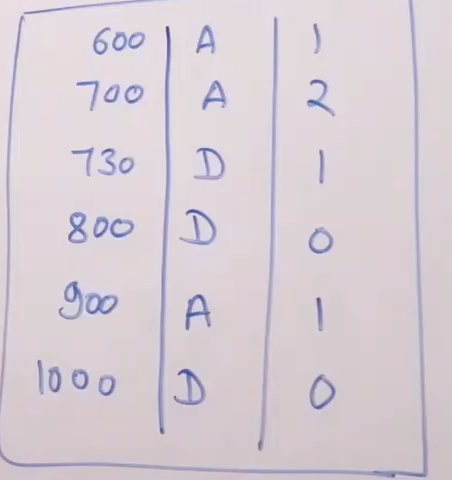 600 A 1
700 A 2
730 D 1
800 D 0
900 A 1
1000 D 0